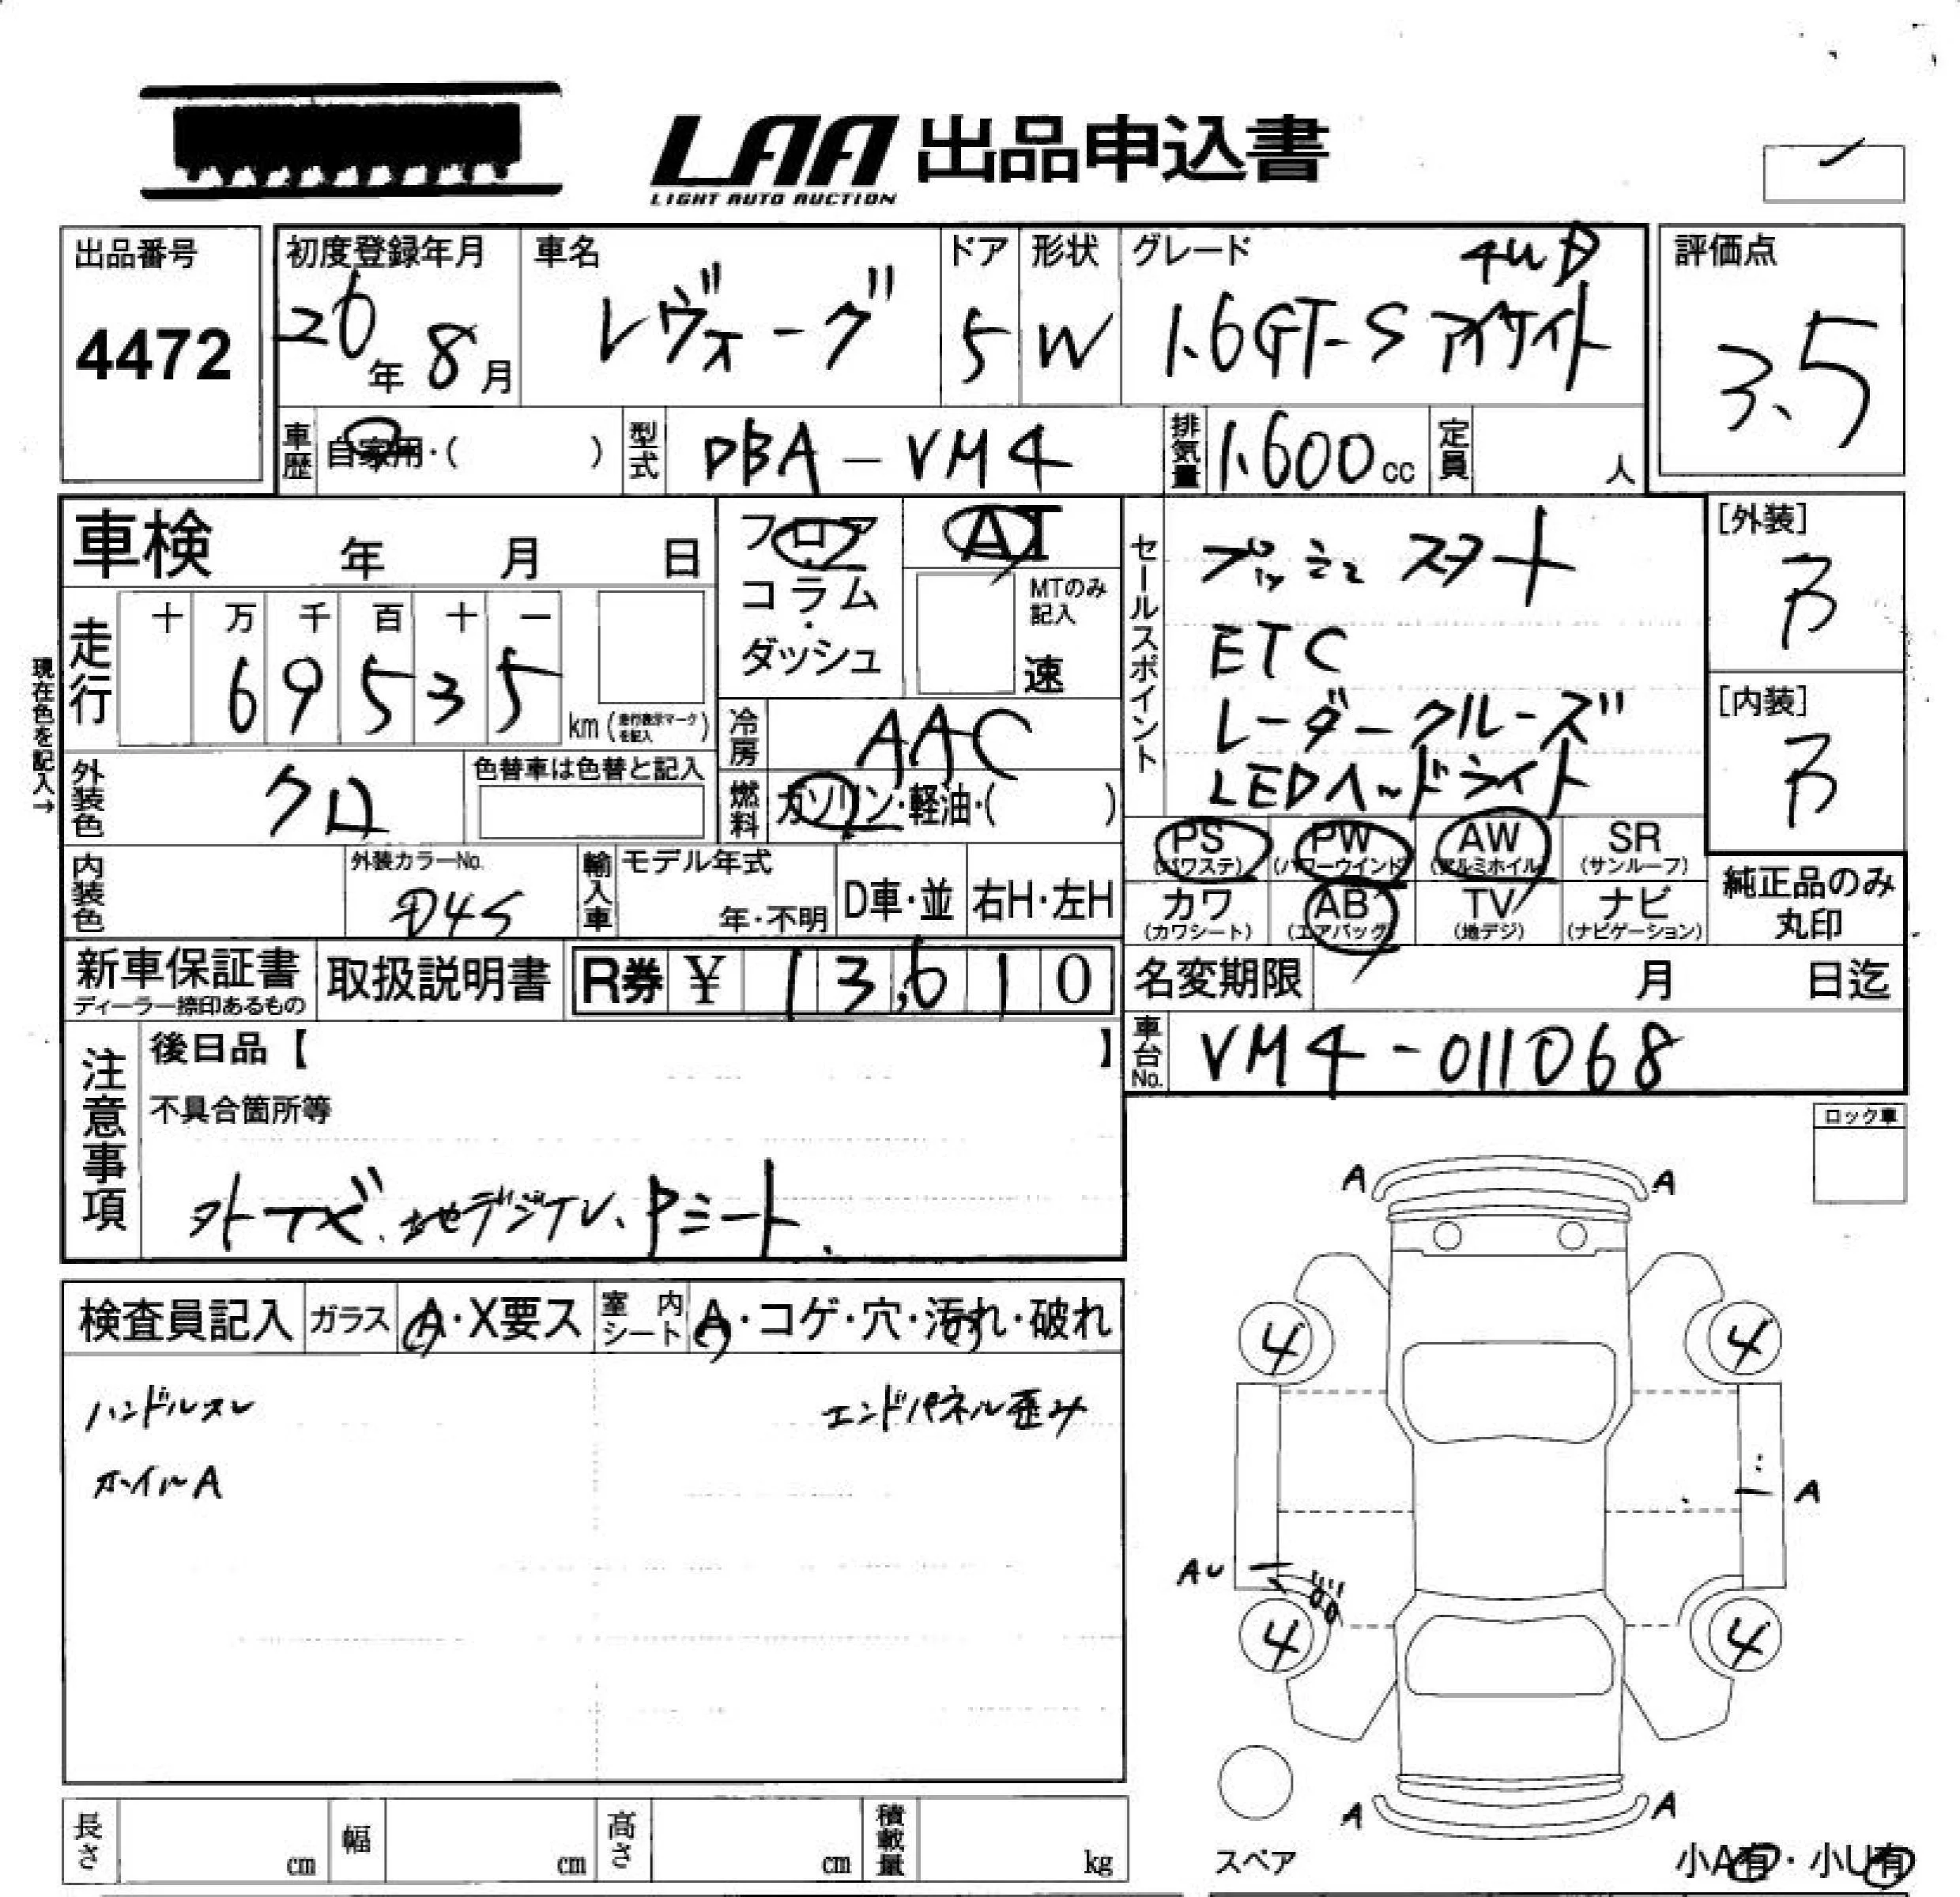 LAA 出品申込書
LIGHT AUTO AUCTION
出品番号
4472
初度登録年月
26年 8月
車名
レヴォーグ
ドア
5
形状
W
グレード
4WD
1.6GT-S アイサイト
評価点
3.5
車歴 自家用・( )
型式 DBA-VM4
排気量 1.600cc
定員 人
車検 年 月 日
フロア
・
コラム
・
ダッシュ
AT
MTのみ
記入
速
セールスポイント
プッシュスタート
ETC
レーダークルーズ
LEDヘッドライト
[外装]
B
[内装]
B
現在色を記入→
走行
十 万 千 百 十 一
6 9 5 3 5
km(走行表示マークを記入)
冷房 AAC
外装色 クロ
色替車は色替と記入
燃料 ガソリン・軽油・( )
PS
(パワステ)
PW
(パワーウインド)
AW
(アルミホイル)
SR
(サンルーフ)
カワ
(カワシート)
AB
(エアバッグ)
TV
(地デジ)
ナビ
(ナビゲーション)
純正品のみ
丸印
内装色
外装カラーNo.
D4S
輸入車
モデル年式
年・不明
D車・並
右H・左H
新車保証書
ディーラー捺印あるもの
取扱説明書
R券 ¥ 13,610
名変期限 月 日迄
車台No. VM4-011068
注意事項
後日品【 】
不具合箇所等
外ナビ、地デジTV、Pシート、
ロック車
検査員記入
ガラス A・X要ス
室内シート A・コゲ・穴・汚れ・破れ
ハンドルスレ
エンドパネル歪み
ホイルA
A A
4 4
A
AU
4 4
A A
スペア
小A有・小U有
長さ cm
幅 cm
高さ cm
積載量 kg